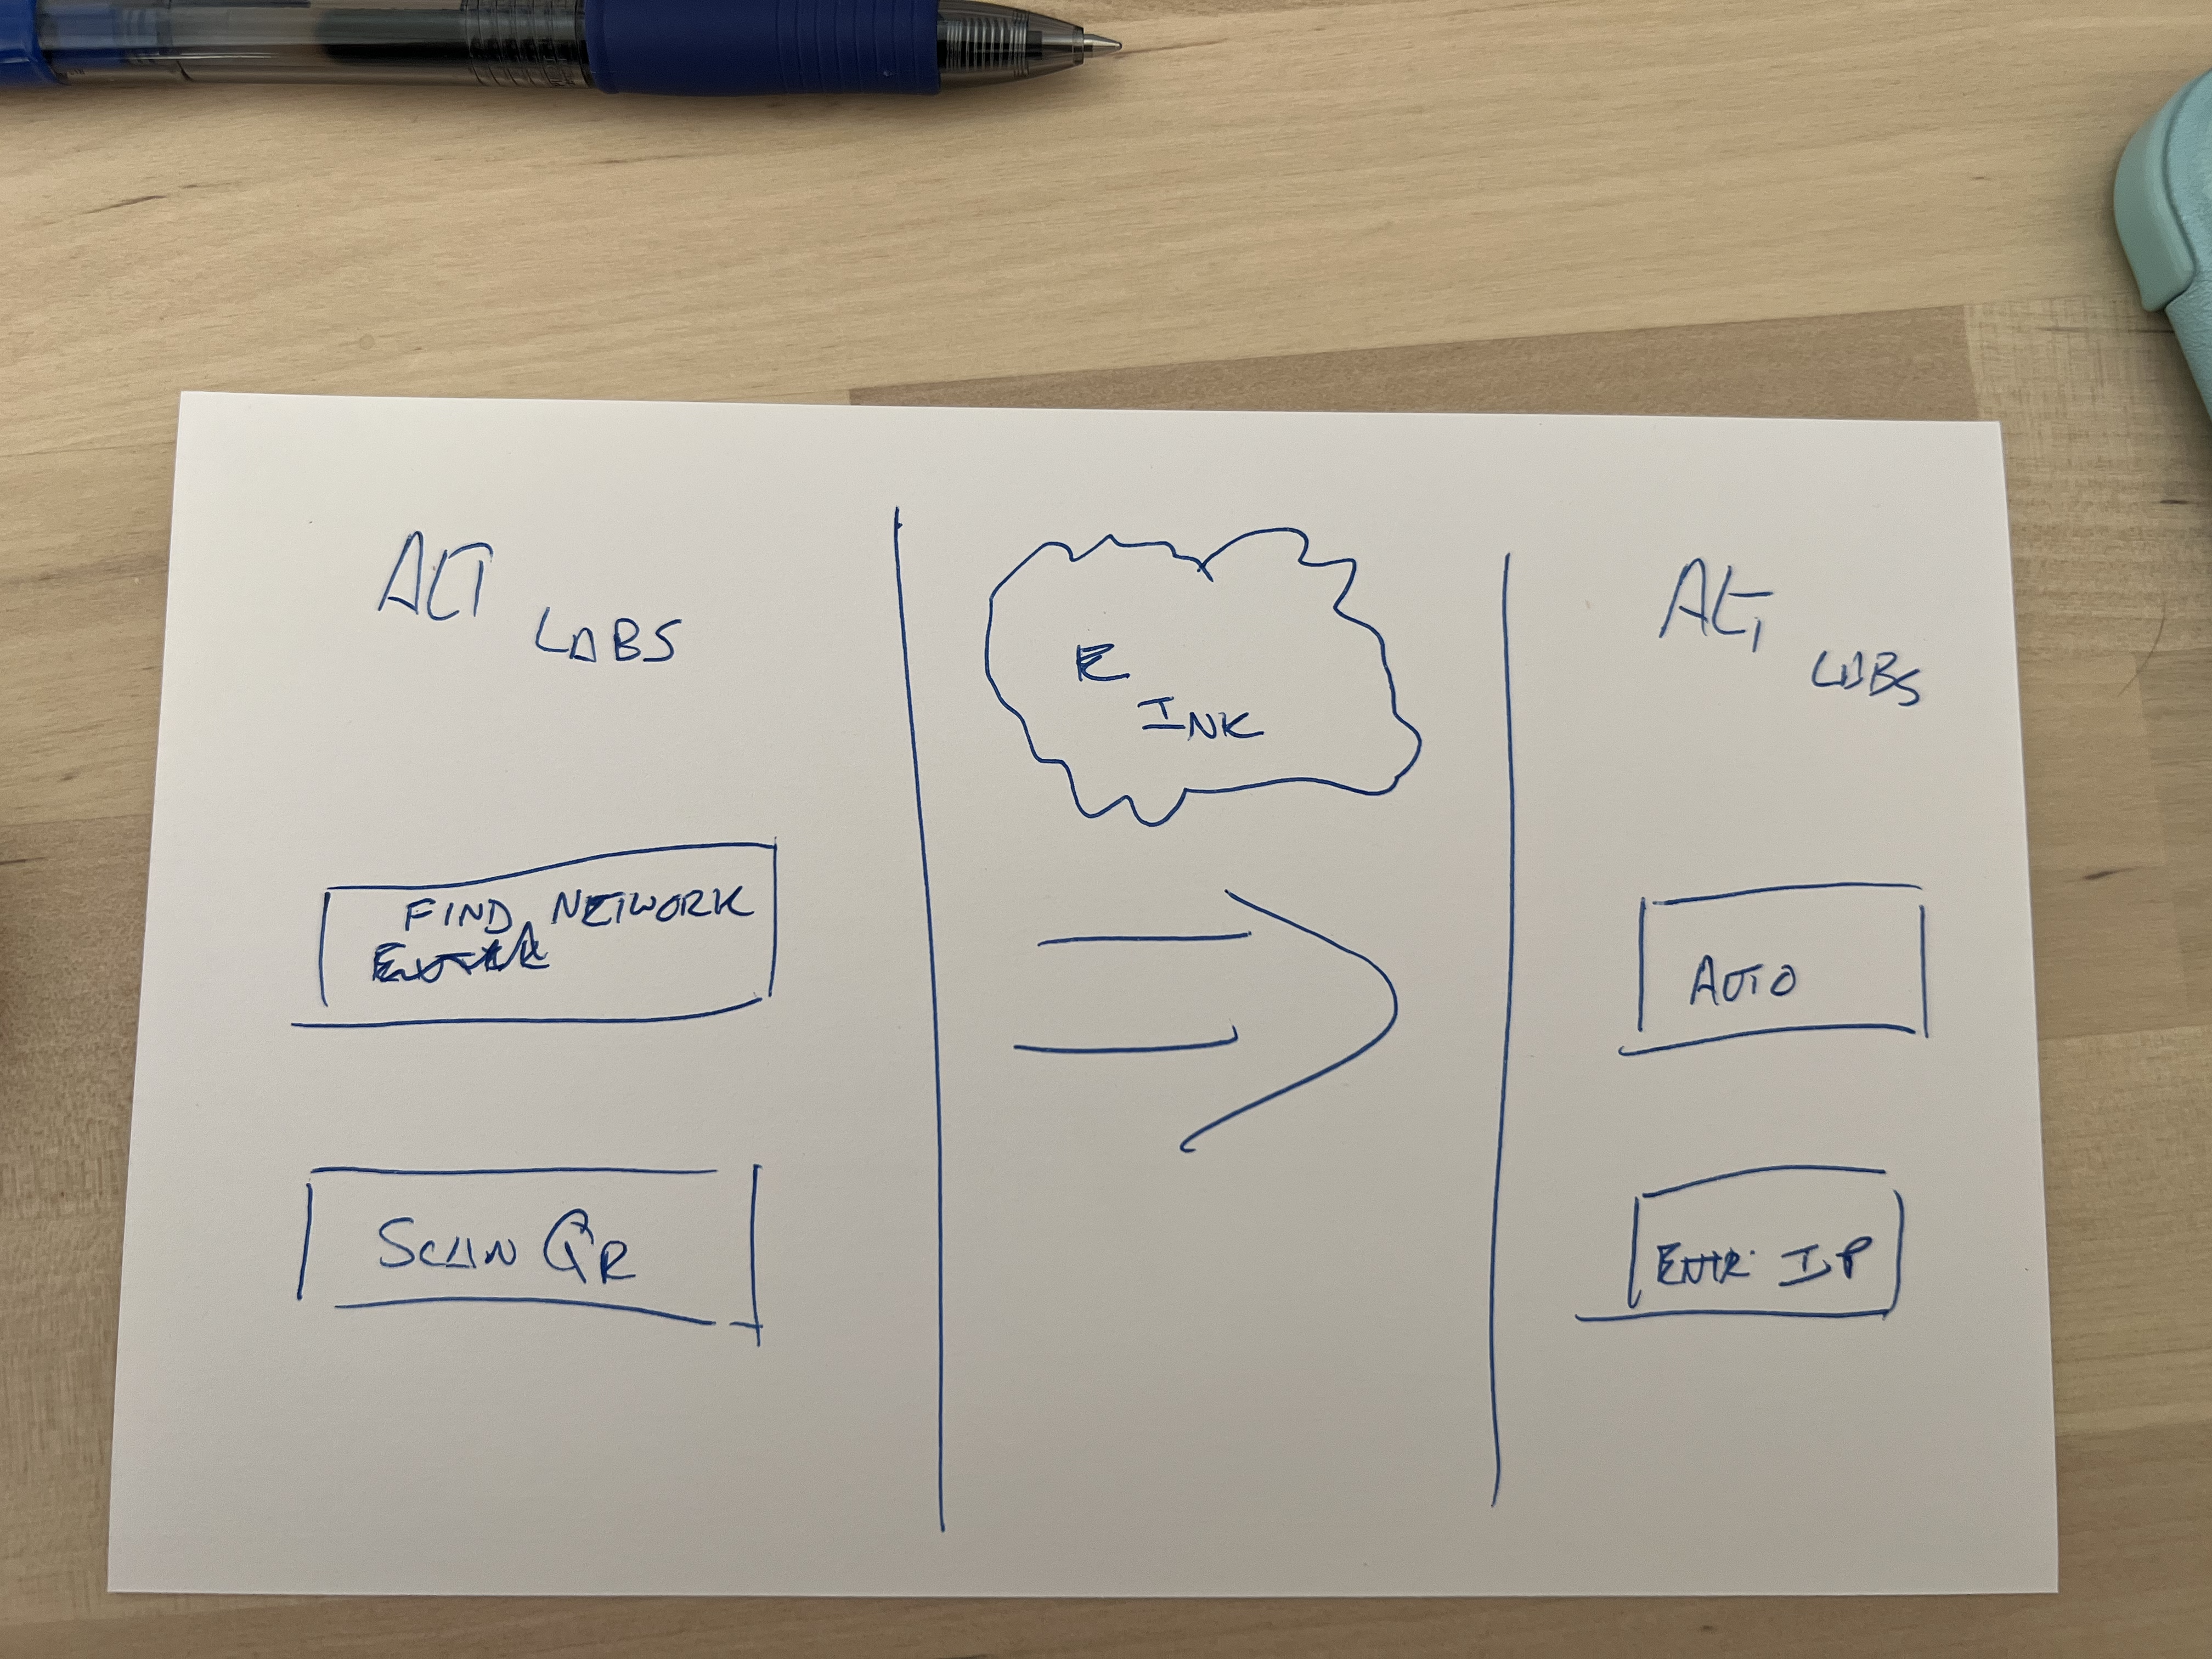 ALT
LABS
FIND NETWORK
SCAN QR
E
INK
ALT
LABS
AUTO
ENTR IP